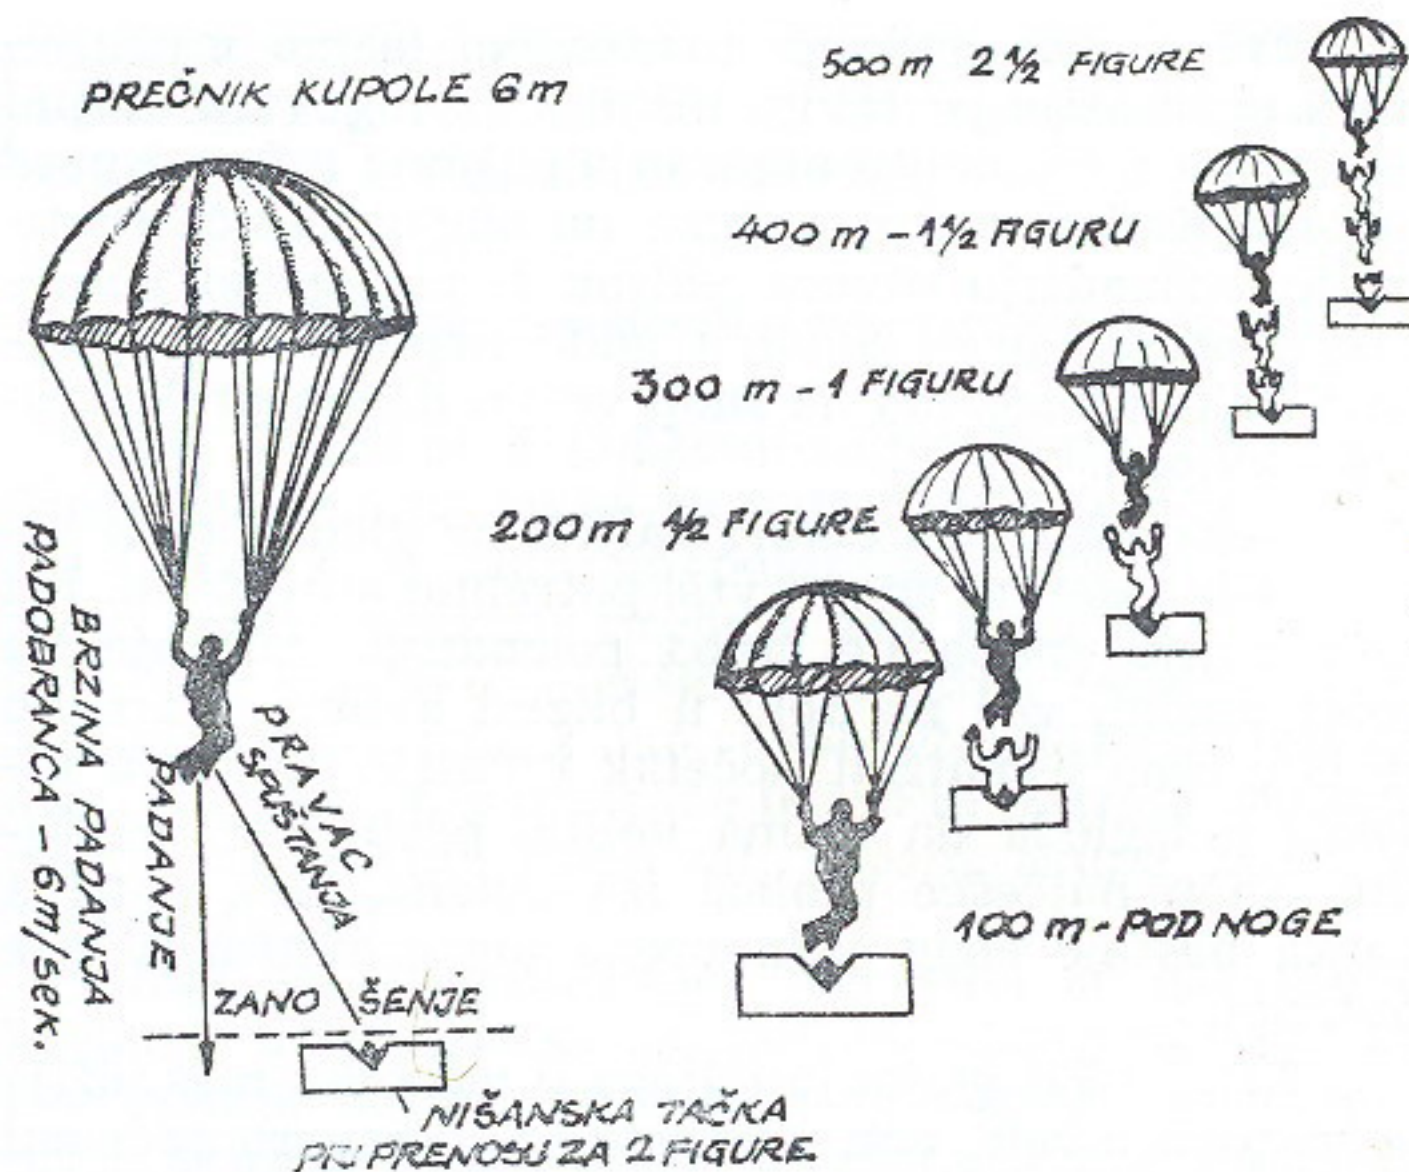 PREČNIK KUPOLE 6m
500m 2 ½ FIGURE
400 m - 1½ FIGURU
300 m - 1 FIGURU
200m ½ FIGURE
100 m - POD NOGE
BRZINA PADANJA
PADOBRANCA - 6m/sek.
PADANJE
PRAVAC
SPUŠTANJA
ZANO ŠENJE
NIŠANSKA TAČKA
PRI PRENOSU ZA 2 FIGURE